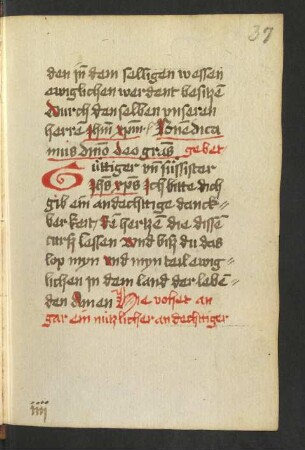 37
den jn dem selligen wessen
ewiglichen werdent besitzen
Durch den selben vnseren
herren jhm xpm Benedica
mus dno deo gras gebet
Güttiger vn süssister
jhs xps Ich bitte dich
gib ein andechttige danck=
berkeit den hertzen die dissen
curß lessen vnd biß du das
lop myn vnd myn teil ewig=
lichen in dem land der lebe=
den Amen Hie vohet an
gar ein nützlicher andechtiger
iiii